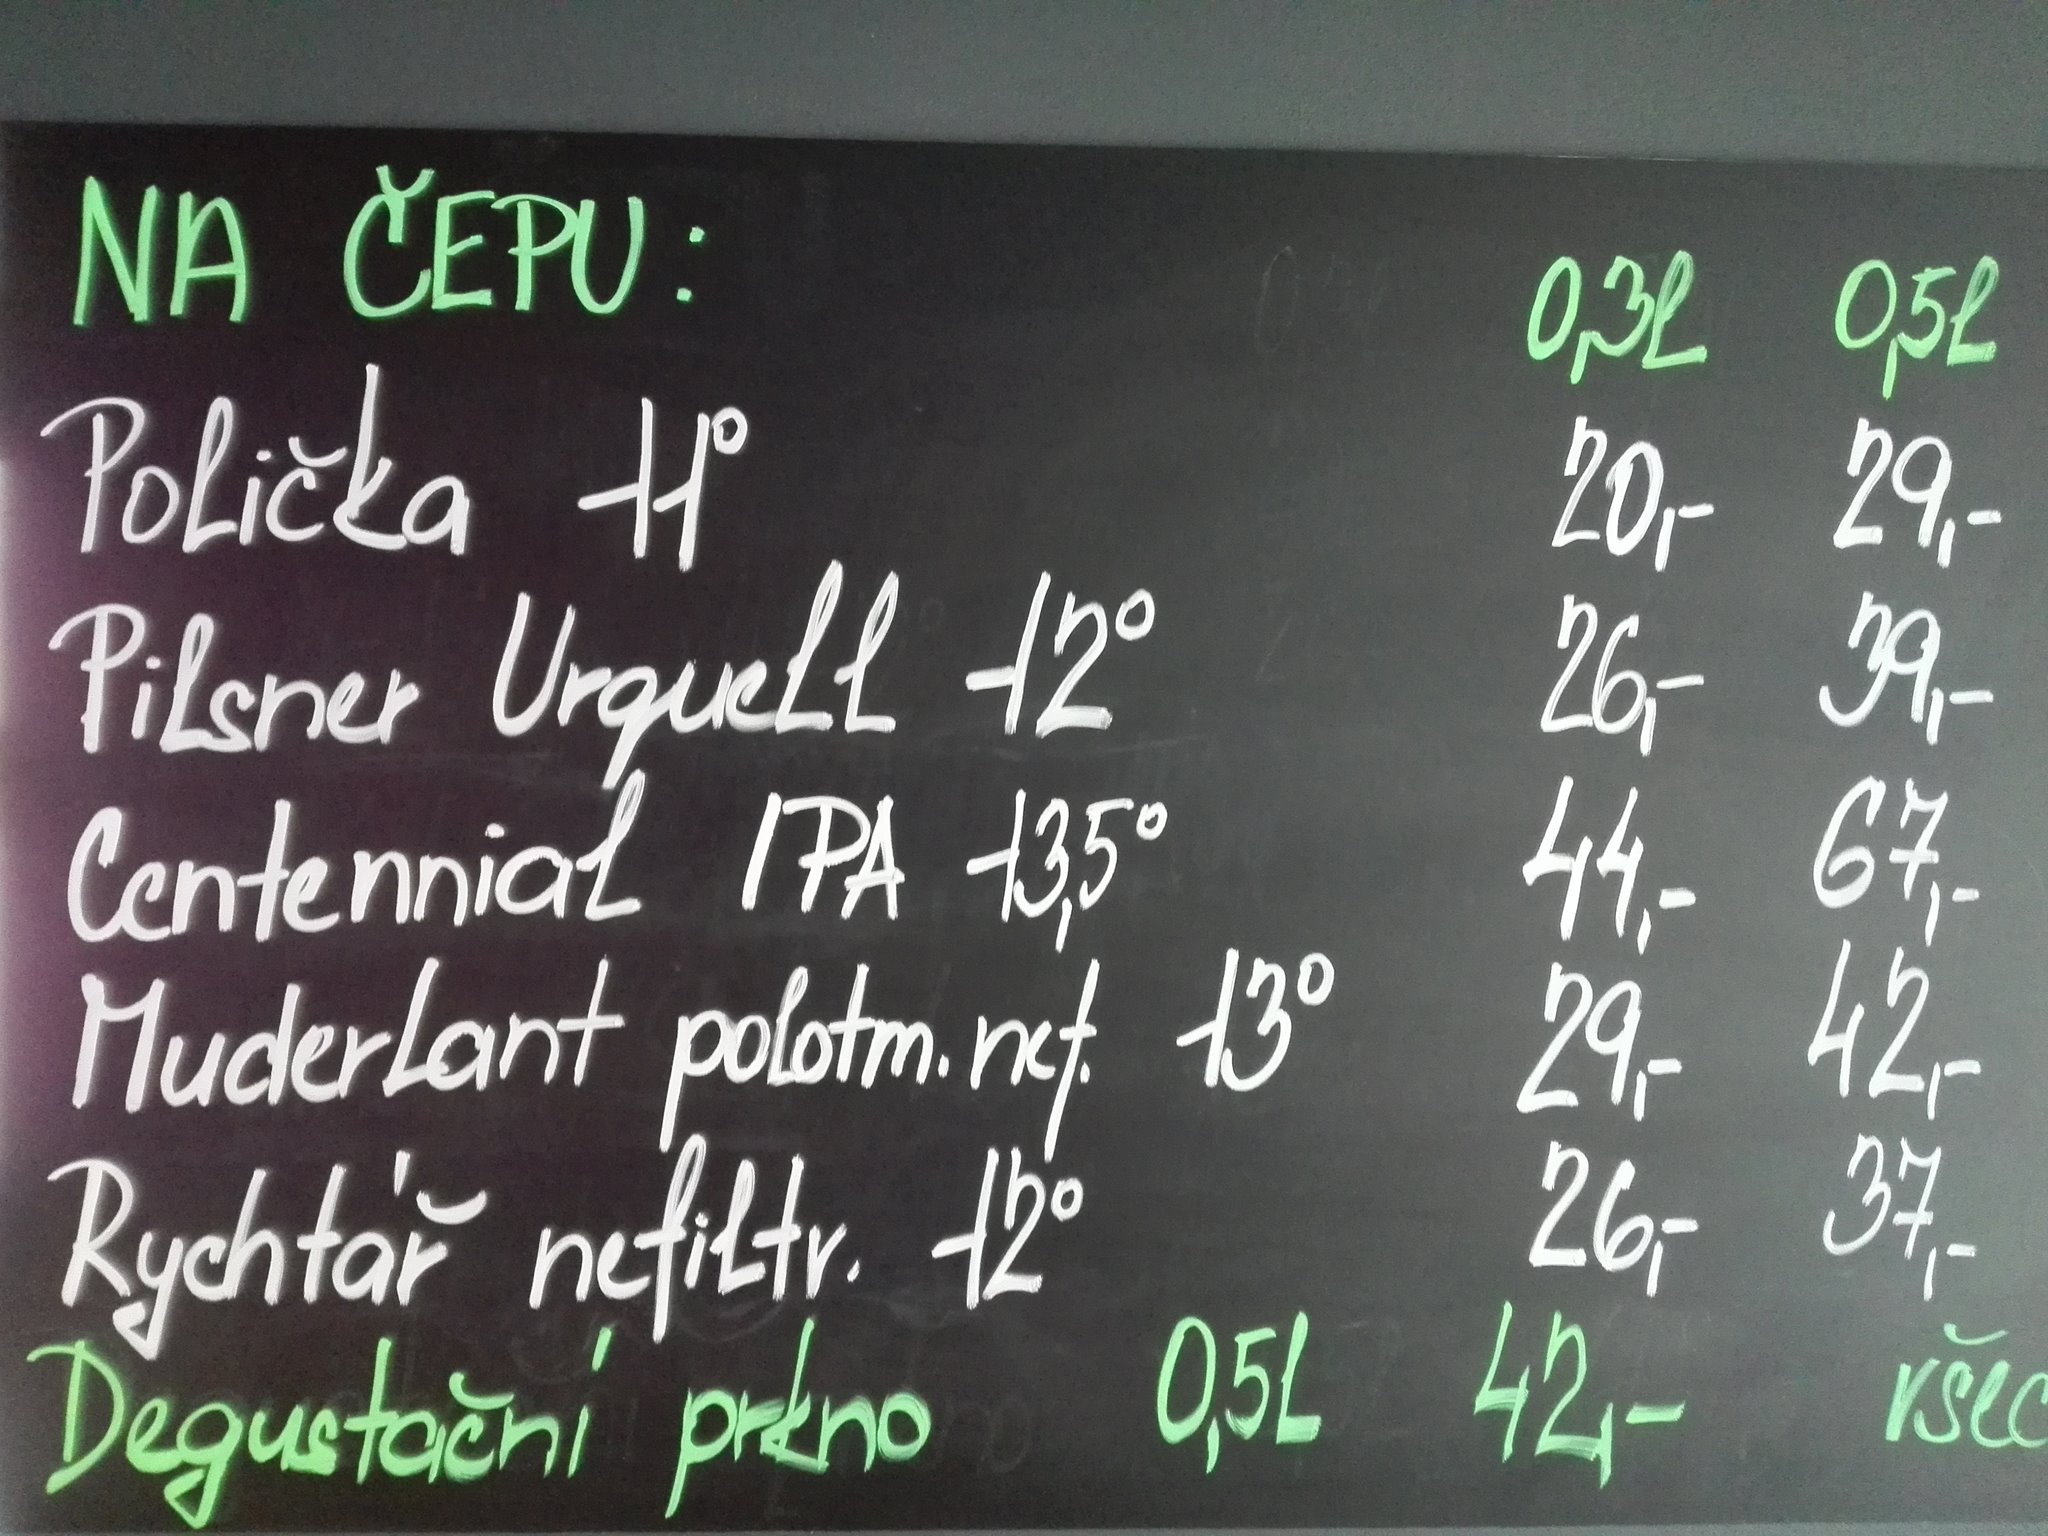 NA ČEPU: 0,3l 0,5l
Polička 11° 20,- 29,-
Pilsner Urquell 12° 26,- 39,-
Centennial IPA 13,5° 44,- 67,-
Muderlant polotm. nef. 13° 29,- 42,-
Rychtář nefiltr. 12° 26,- 37,-
Degustační prkno 0,5l 42,-